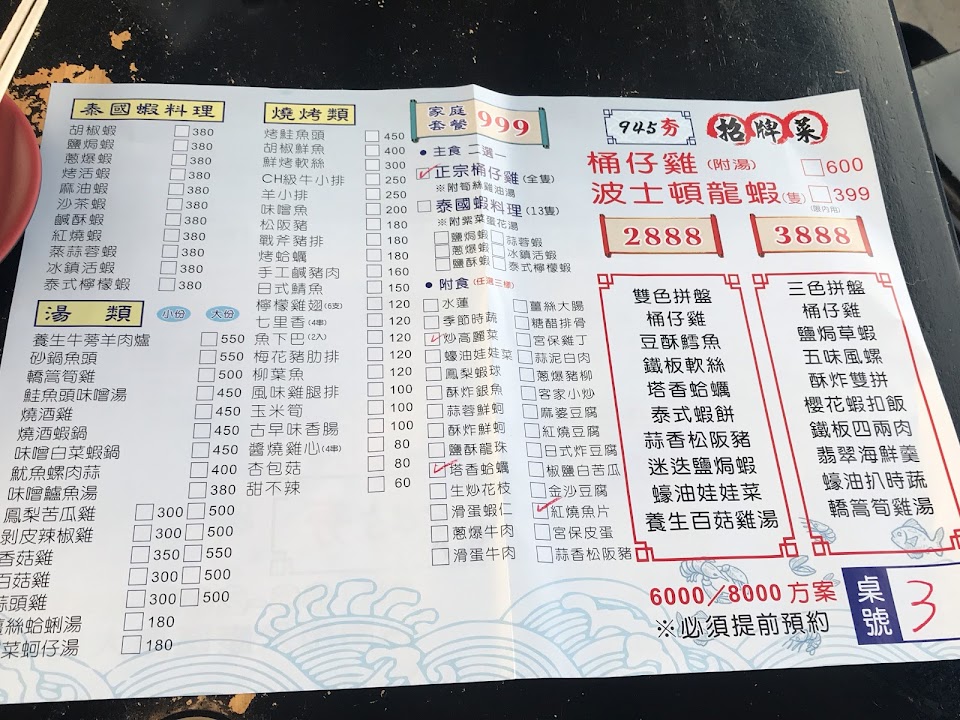 泰國蝦料理
胡椒蝦 380
鹽焗蝦 380
蔥爆蝦 380
烤活蝦 380
麻油蝦 380
沙茶蝦 380
鹹酥蝦 380
紅燒蝦 380
蒸蒜蓉蝦 380
冰鎮活蝦 380
泰式檸檬蝦 380
湯類 小份 大份
養生牛蒡羊肉爐 550
砂鍋魚頭 550
轎篙筍雞 500
鮭魚頭味噌湯 450
燒酒雞 450
燒酒蝦鍋 450
味噌白菜蝦鍋 450
魷魚螺肉蒜 400
味噌鱸魚湯 380
鳳梨苦瓜雞 300 500
剝皮辣椒雞 300 500
香菇雞 350 550
百菇雞 300 500
蒜頭雞 300 500
薑絲蛤蜊湯 180
菜蚵仔湯 180
燒烤類
烤鮭魚頭 450
胡椒鮮魚 400
鮮烤軟絲 300
CH級牛小排 250
羊小排 250
味噌魚 200
松阪豬 180
戰斧豬排 180
烤蛤蠣 180
手工鹹豬肉 160
日式鯖魚 150
檸檬雞翅(6支) 120
七里香(4串) 120
魚下巴(2入) 120
梅花豬肋排 120
柳葉魚 120
風味雞腿排 100
玉米筍 100
古早味香腸 100
醬燒雞心(4串) 80
杏包菇 80
甜不辣 60
家庭套餐 999
●主食 二選一
正宗桶仔雞(全隻)
※附筍絲雞油湯
泰國蝦料理(13隻)
※附紫菜蛋花湯
鹽焗蝦 蒜蓉蝦
蔥爆蝦 冰鎮活蝦
鹽酥蝦 泰式檸檬蝦
●附食(任選三樣)
水蓮 薑絲大腸
季節時蔬 糖醋排骨
炒高麗菜 宮保雞丁
蠔油娃娃菜 蒜泥白肉
鳳梨蝦球 蔥爆豬柳
酥炸銀魚 客家小炒
蒜蓉鮮蚵 麻婆豆腐
酥炸鮮蚵 紅燒豆腐
鹽酥龍珠 日式炸豆腐
塔香蛤蠣 椒鹽白苦瓜
生炒花枝 金沙豆腐
滑蛋蝦仁 紅燒魚片
蔥爆牛肉 宮保皮蛋
滑蛋牛肉 蒜香松阪豬
945夯 招牌菜
桶仔雞(附湯) 600
波士頓龍蝦(隻) 399
(限內用)
2888
雙色拼盤
桶仔雞
豆酥鱈魚
鐵板軟絲
塔香蛤蠣
泰式蝦餅
蒜香松阪豬
迷迭鹽焗蝦
蠔油娃娃菜
養生百菇雞湯
3888
三色拼盤
桶仔雞
鹽焗草蝦
五味風螺
酥炸雙拼
櫻花蝦扣飯
鐵板四兩肉
翡翠海鮮羹
蠔油扒時蔬
轎篙筍雞湯
6000/8000方案
※必須提前預約
桌號 3